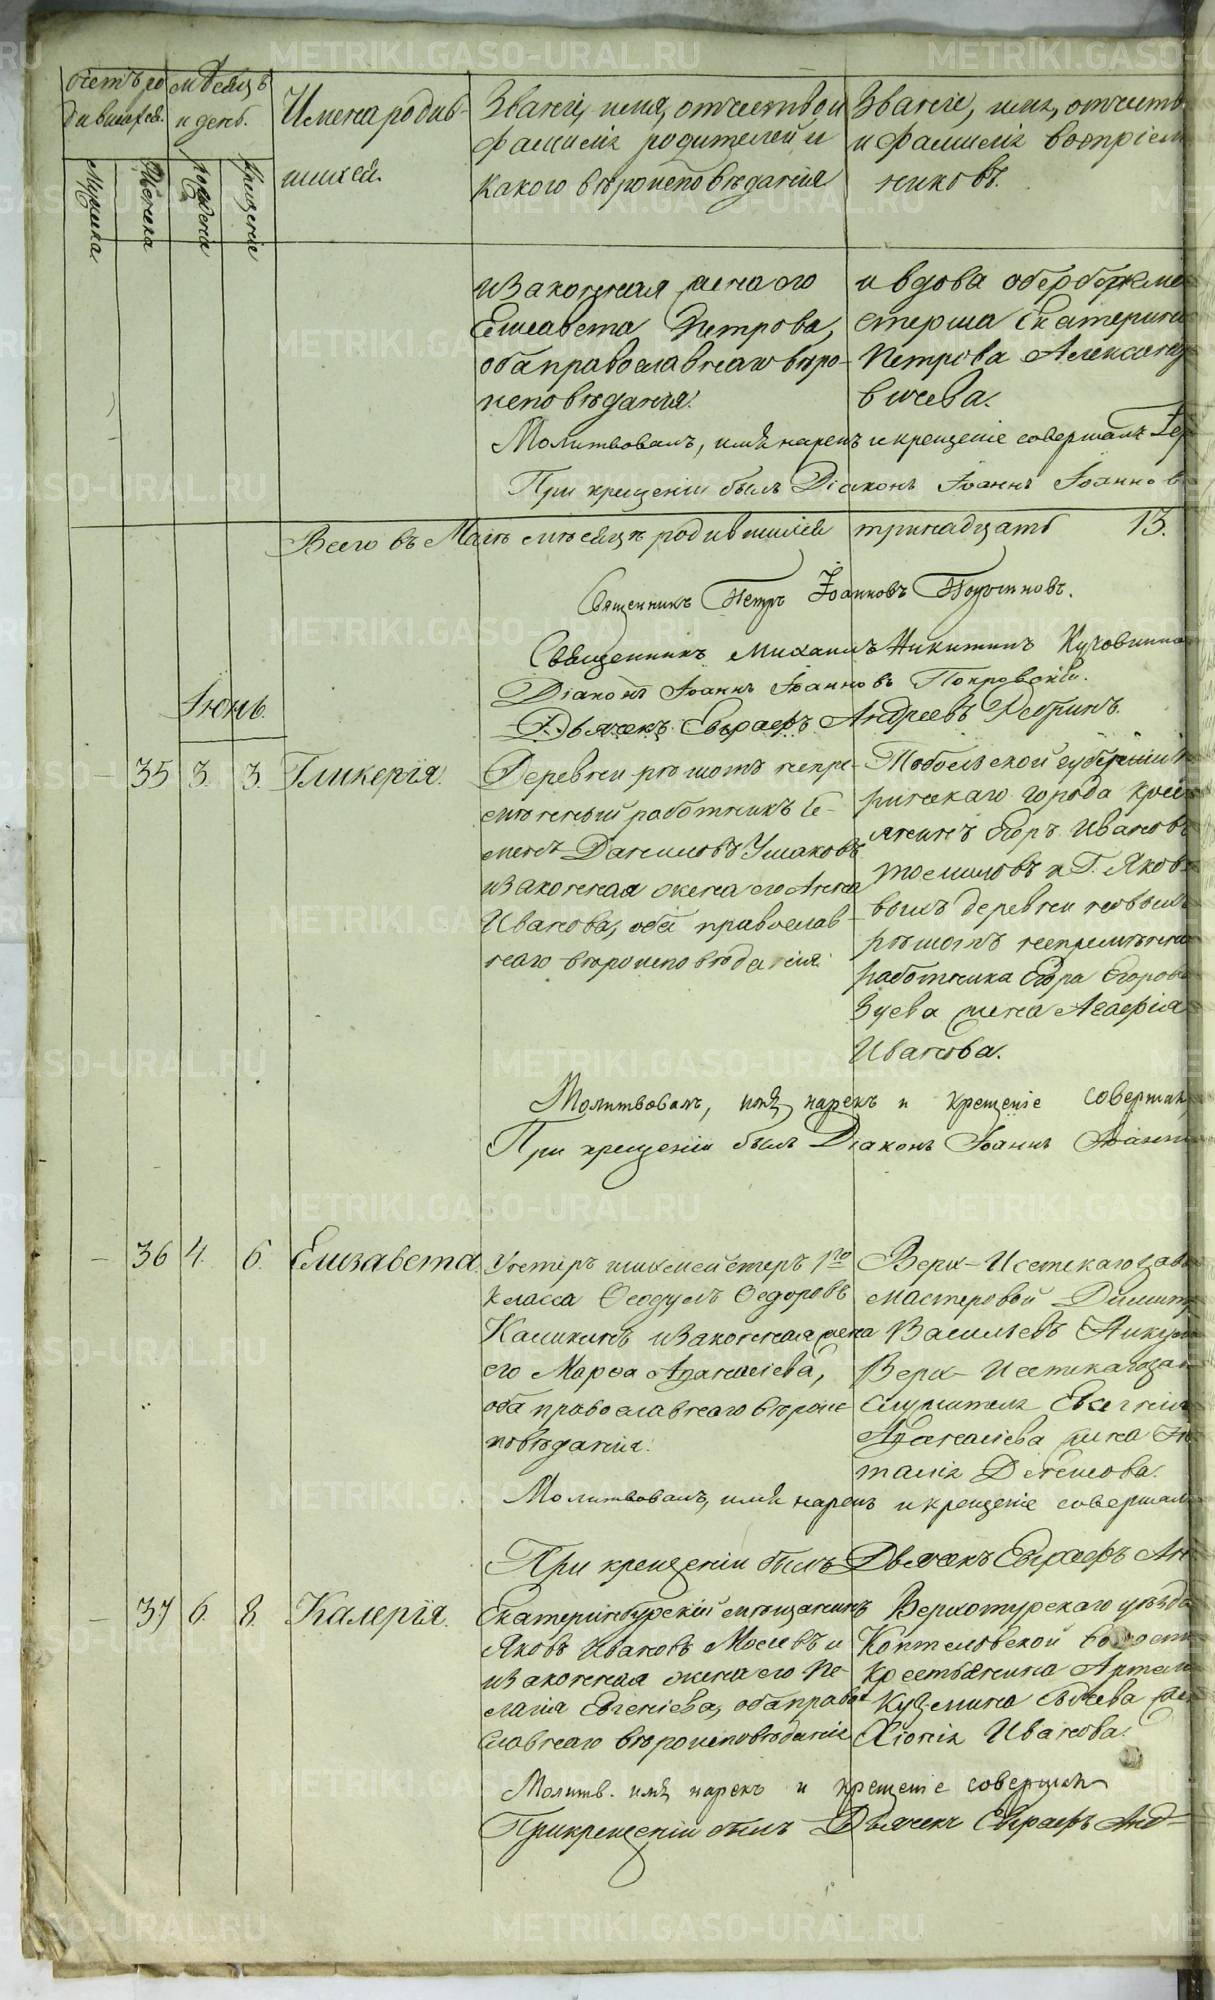 METRIKI.GASO-URAL.RU
Счетъ ро
дившихся.
мѣсяцъ
и день.
Имена родив-
шихся.
Званіе, имя, отчество и
фамилія родителей и
какого вѣроисповѣданія
Званіе, имя, отчеств
и фамилія воспріем
никовъ.
Мужеска
Женска
рожденія
крещенія
и законная жена его
Елисавета Петрова,
оба православнаго вѣро-
исповѣданія.
и вдова обербергме
стерша Екатерина
Петрова Александ
вичева.
Молитвовалъ, имя нарекъ и крещеніе совершалъ
При крещеніи былъ Діаконъ Іоаннъ Іоаннов
Всего въ Маѣ мѣсяцѣ родившихся тринадцать 13.
Священникъ Петръ Іоанновъ
Священникъ Михаилъ Никитинъ
Діаконъ Іоаннъ Іоанновъ Покровскій.
Дьячекъ Евграфъ Андреевъ
Іюнь.
– 35 3. 3. Гликерія.
Деревни рѣшотъ непре-
мѣнный работникъ Се-
менъ Даниловъ Ушаковъ
и законная жена его Анна
Иванова, оба православ-
наго вѣроисповѣданія.
Тобольской губерніи
города
Егоръ Ивановъ
и Г. Яков
вымъ деревни новыхъ
рѣшотъ непремѣнна
работника Егора Егоров
Зуева жена Агафія
Иванова.
Молитвовалъ, имя нарекъ и крещеніе совершал
При крещеніи былъ Діаконъ Іоаннъ Іоанн
– 36 4. 6. Елизавета.
Унтеръ шихмейстеръ 1го
класса Ѳеодулъ Ѳедоровъ
Каликинъ и законная жена
его Марѳа Аѳанасіева,
оба православнаго вѣроис-
повѣданія.
Верх-Исетскаго зав
мастеровой Димитр
Васильевъ
Верх-Исетскаго зав
служителя Евгенія
Аѳанасіева жена
талія Денисова.
Молитвовалъ, имя нарекъ и крещеніе совершал
При крещеніи былъ Дьячекъ Евграфъ Ан
– 37 6. 8. Калерія.
Екатеринбургскій мѣщанинъ
Яковъ Ивановъ и
и законная жена его Пе-
лагія Евгеніева, оба право-
славнаго вѣроисповѣданія
Верхотурскаго уѣзда
Коптеловской волости
крестьянина Артем
Кузмина жен
Хіонія Иванова.
Молитв. имя нарекъ и крещеніе совершал
При крещеніи былъ Дьячекъ Евграфъ Анд-